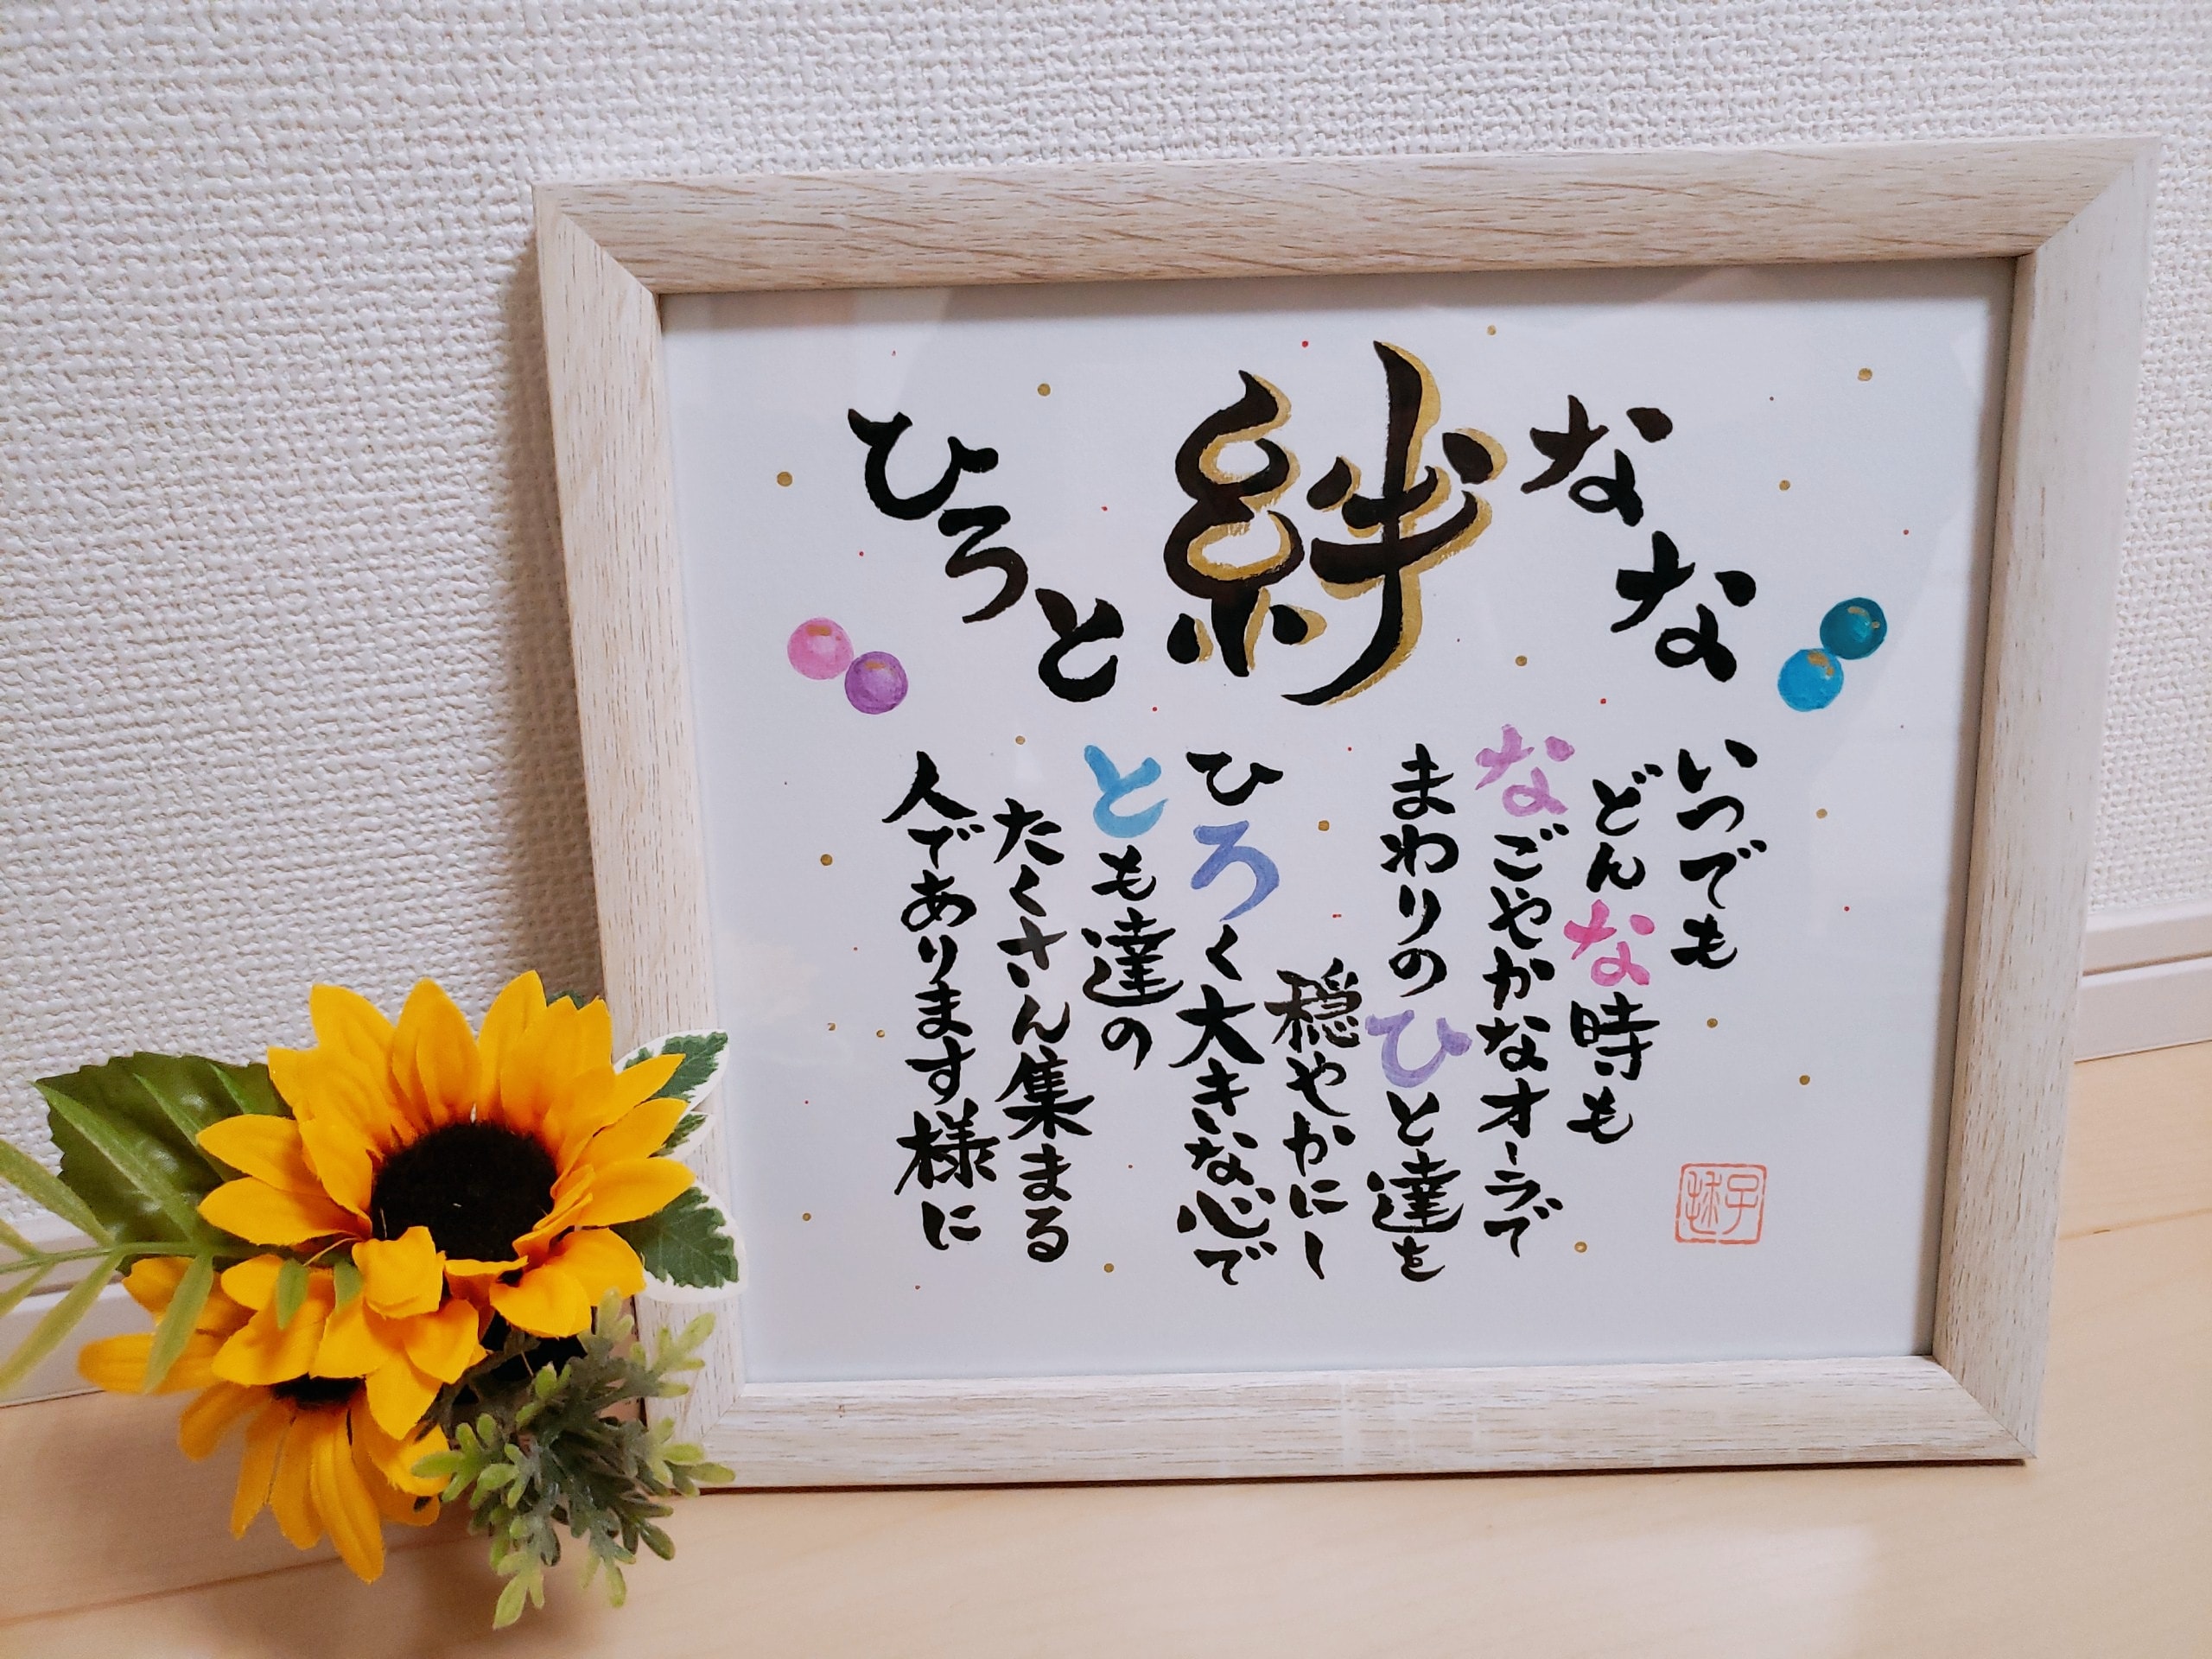 なな
絆
ひろと
いつでも
どんな時も
なごやかなオーラで
まわりのひと達を
穏やかにし
ひろく大きな心で
とも達の
たくさん集まる
人であります様に